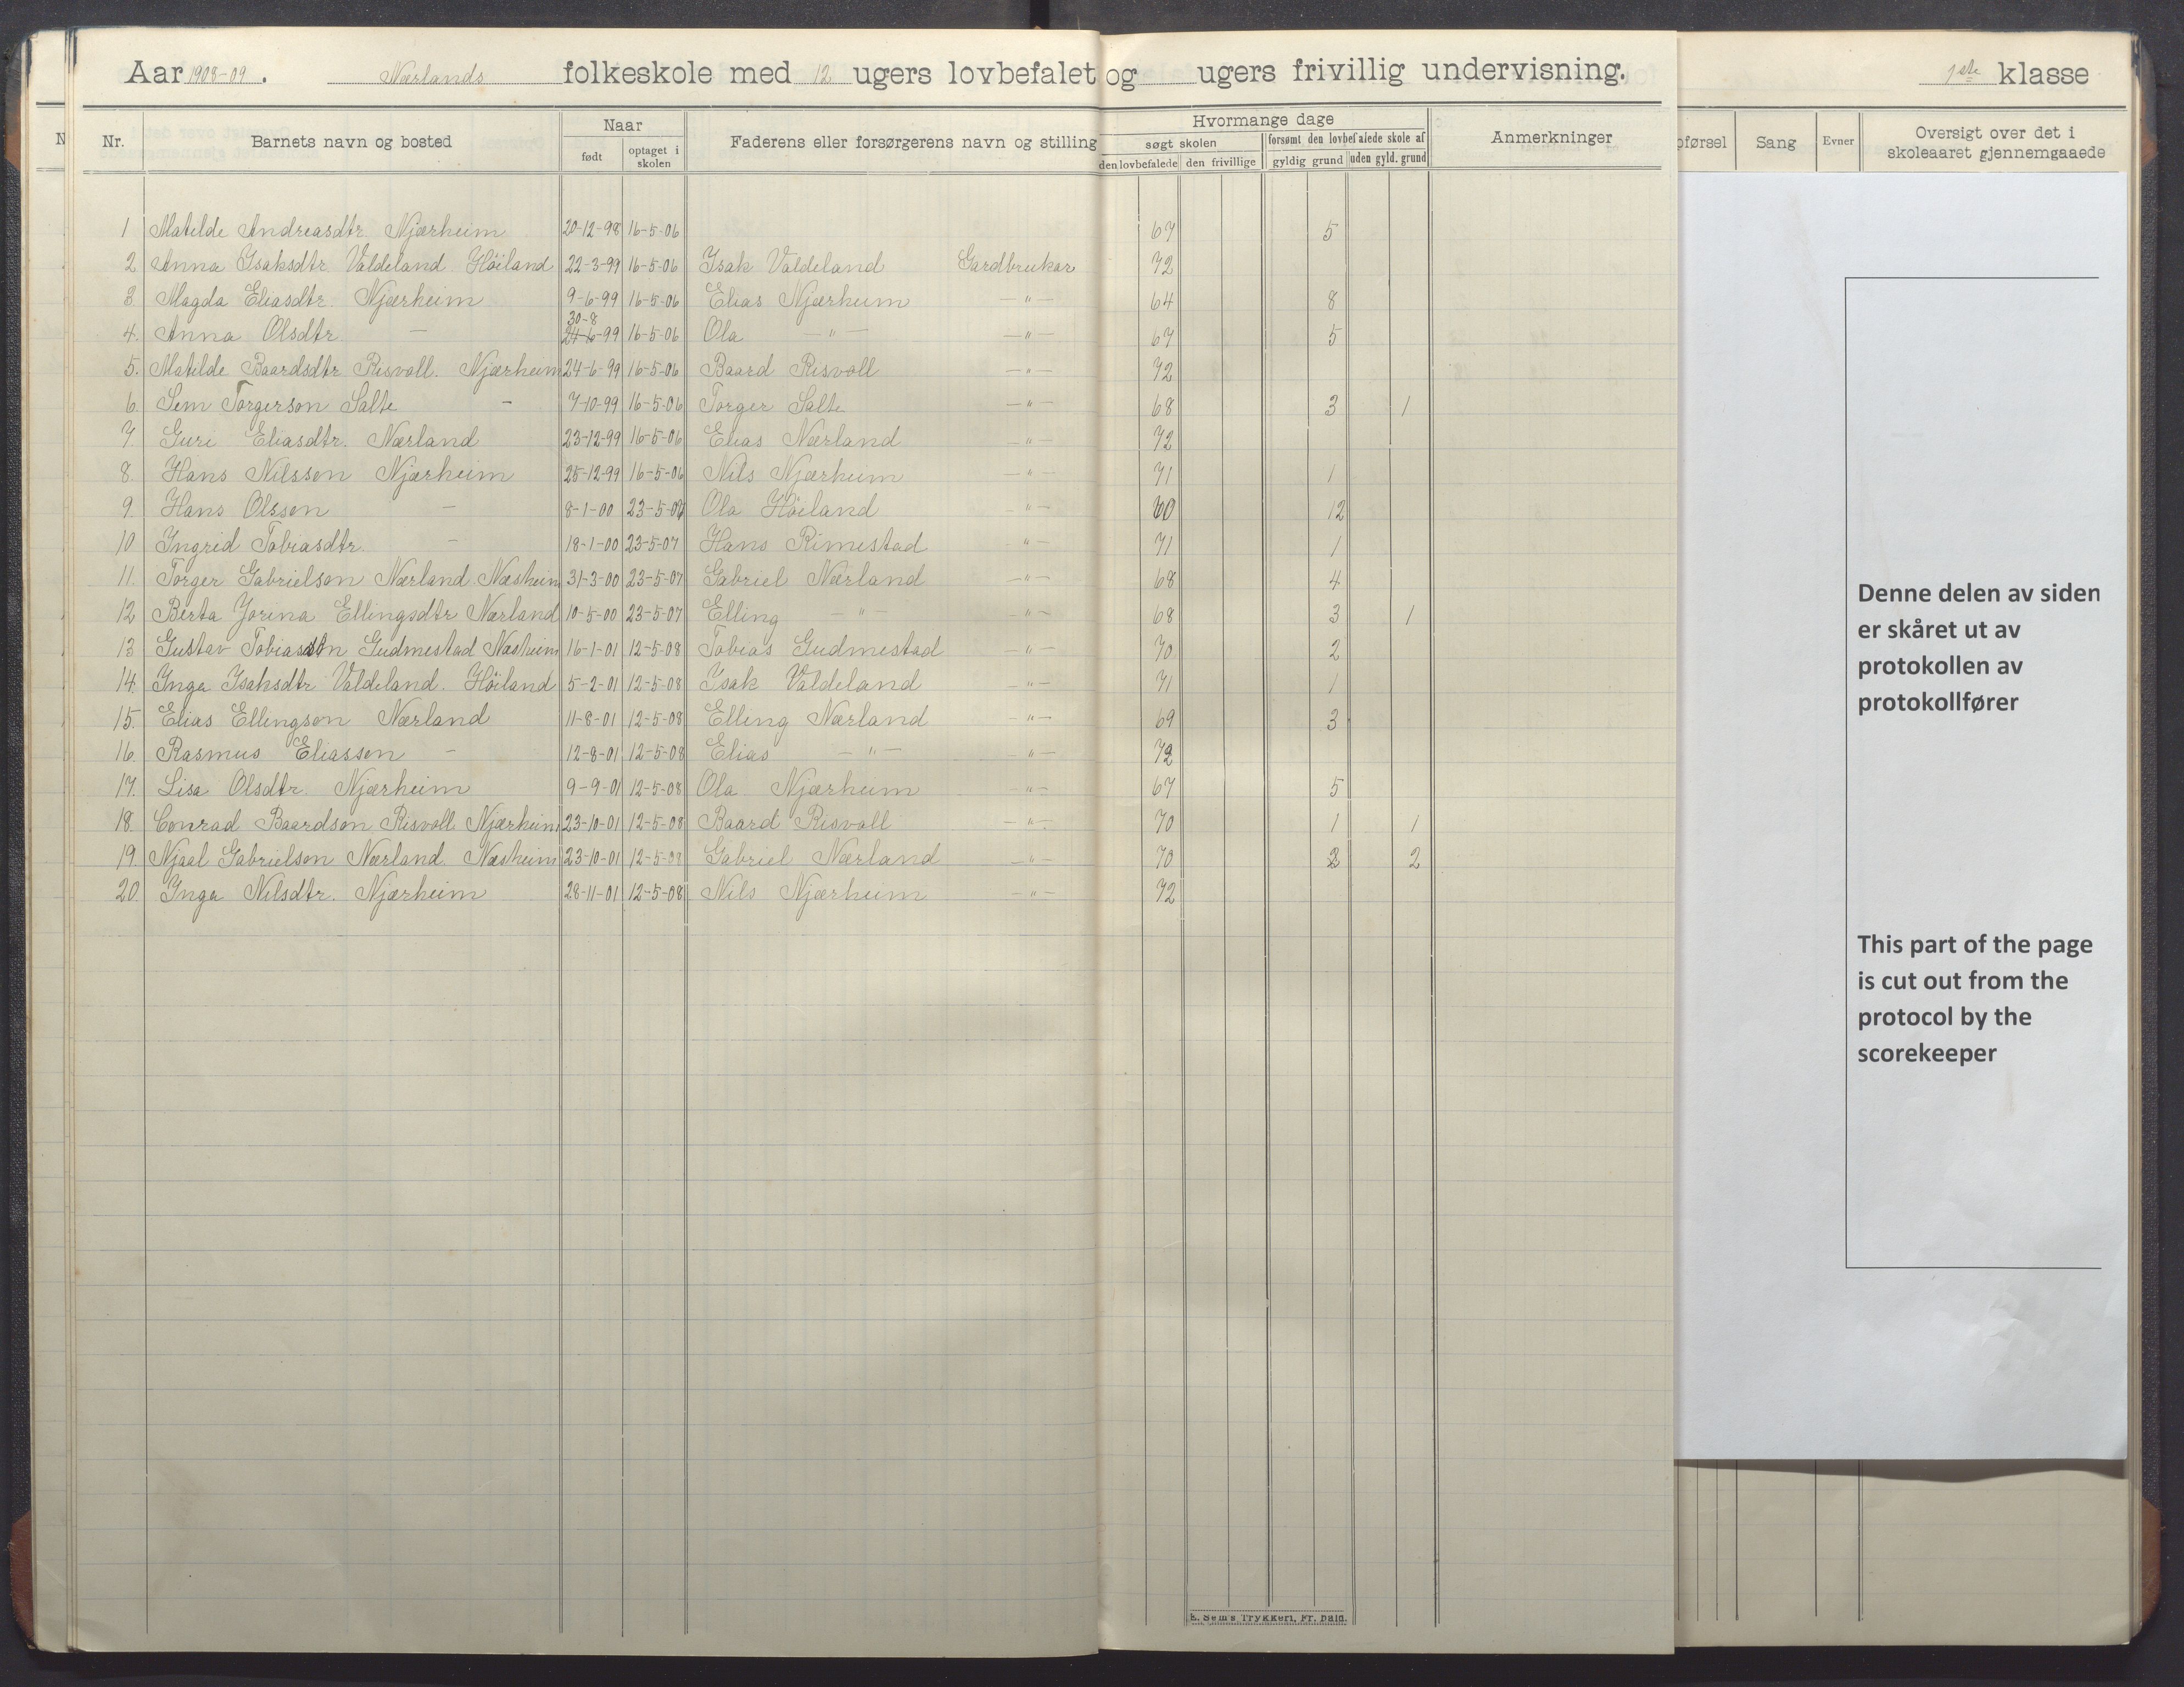 Aar 1908-09. Nærlands folkeskole med 12 ugers lovbefalet og ugers frivillig undervisning. 1ste klasse
Nr. Barnets navn og bosted Naar født optaget i skolen Faderens eller forsørgerens navn og stilling Hvormange dage søgt skolen den lovbefalede den frivillige forsømt den lovbefalede skole af gyldig grund uden gyld. grund Anmerkninger pførsel Sang Evner Oversigt over det i skoleaaret gjennemgaaede
1 Matilde Andreasdtr Njærheim 20-12-98 16-5-06 67 5
2 Anna Isaksdtr Valdeland Höiland 22-3-99 16-5-06 Isak Valdeland Gardbrukar 72
3. Magda Eliasdtr. Njærheim 9-6-99 16-5-06 Elias Njærheim —"— 64 8
30-8
4. Anna Olsdtr — 24-6-99 16-5-06 Ola —"— —"— 67 5
5. Matilde Baardsdtr Risvoll. Njærheim 24-6-99 16-5-06 Baard Risvoll —"— 72
6. Sem Torgerson Salte - 7-10-99 16-5-06 Torger Salte —"— 68 3 1
7. Guri Eliasdtr. Nærland 23-12-99 16-5-06 Elias Nærland —"— 72
8. Hans Nilsson Njærheim 25-12-99 16-5-06 Nils Njærheim —"— 71 1
9. Hans Olsson — 8-1-00 23-5-07 Ola Höiland —"— 60 12
10 Ingrid Tobiasdtr. — 18-1-00 23-5-07 Hans Rimestad —"— 71 1
11. Torger Gabrielson Nærland Næsheim 31-3-00 23-5-07 Gabriel Nærland —"— 68 4
12 Berta Jorina Ellingsdtr Nærland 10-5-00 23-5-07 Elling —"— —"— 68 3 1
13 Gustav Tobiasson Gudmestad Næsheim 16-1-01 12-5-08 Tobias Gudmestad —"— 70 2
14. Inga Isaksdtr Valdeland. Höiland 5-2-01 12-5-08 Isak Valdeland —"— 71 1
15. Elias Ellingson Nærland 11-8-01 12-5-08 Elling Nærland —"— 69 3
16. Rasmus Eliasson — 12-8-01 12-5-08 Elias —"— —"— 72
17. Lisa Olsdtr. Njærheim 9-9-01 12-5-08 Ola Njærheim —"— 67 5
18. Conrad Baardson Risvoll Njærheim 23-10-01 12-5-08 Baard Risvoll —"— 70 1 1
19. Njaal Gabrielson Nærland. Næsheim 23-10-01 12-5-08 Gabriel Nærland —"— 70 2
20. Inga Nilsdtr. Njærheim 28-11-01 12-5-08 Nils Njærheim —"— 72
E. Sem's Trykkeri, Fr.hald.
Denne delen av siden
er skåret ut av
protokollen av
protokollfører
This part of the page
is cut out from the
protocol by the
scorekeeper